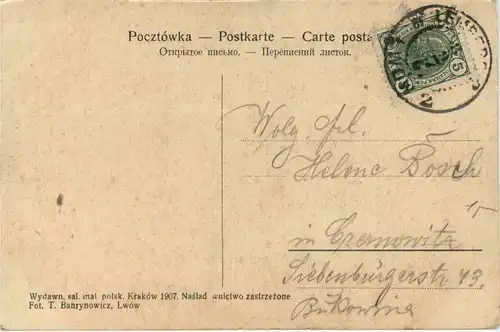 Pocztówka — Postkarte — Carte posta
Открытое письмо. — Переписний листок.
LEMBERG
5
2
Wolg. frl.
Helene Bosch
in Czernowitz
Siebenbürgerstr. 43.
Bukowina
Wydawn. sal. mal. polsk. Kraków 1907. Naśladownictwo zastrzeżone.
Fot. T. Bahrynowicz, Lwów.